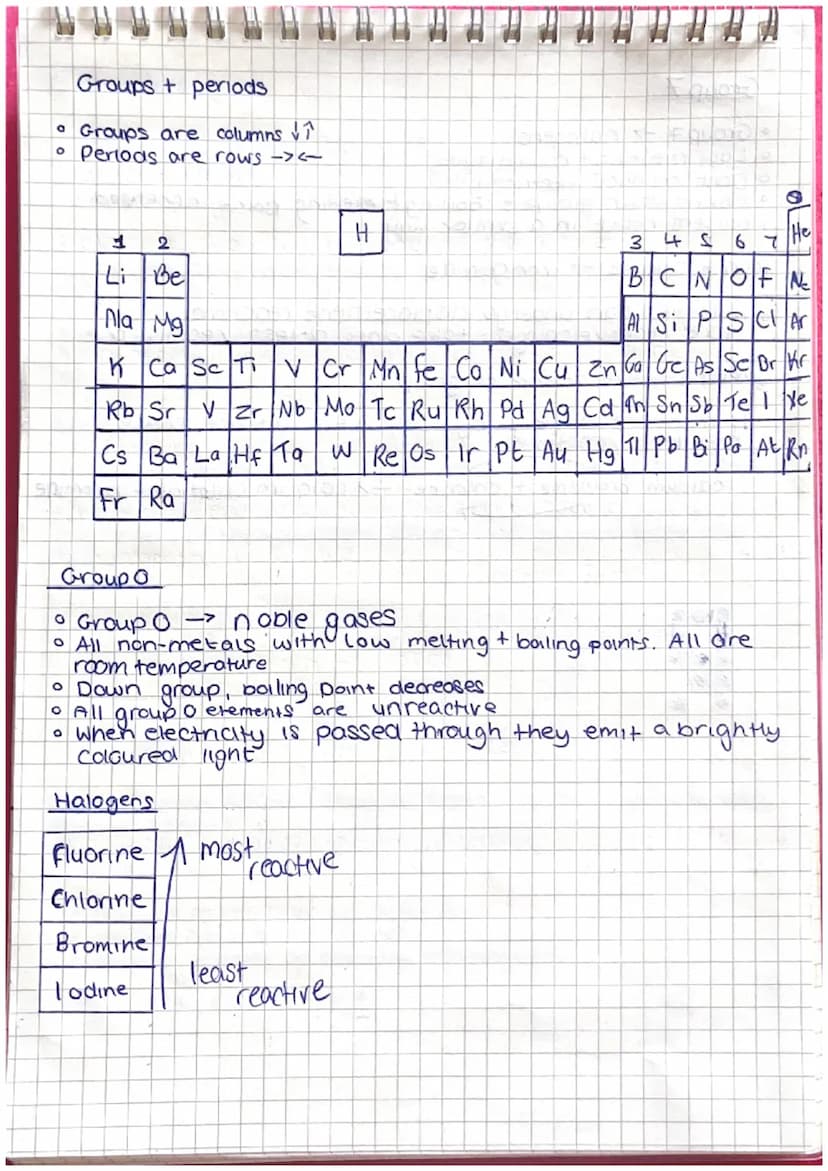 Groups + periods
• Groups are columns ↓↑
• Periods are rows →←
0
1 2 H 3 4 5 6 7 He
Li Be B C N O F Ne
Na Mg Al Si P S Cl Ar
K Ca Sc Ti V Cr Mn Fe Co Ni Cu Zn Ga Ge As Se Br Kr
Rb Sr Y Zr Nb Mo Tc Ru Rh Pd Ag Cd In Sn Sb Te I Xe
Cs Ba La Hf Ta W Re Os Ir Pt Au Hg Tl Pb Bi Po At Rn
Fr Ra
Group 0
• Group 0 → noble gases
• All non-metals with low melting + boiling points. All are
room temperature
• Down group, boiling point decreases
• All group 0 elements are unreactive
• When electricity is passed through they emit a brightly
coloured light
Halogens
Fluorine most
reactive
Chlorine
Bromine
least
Iodine reactive